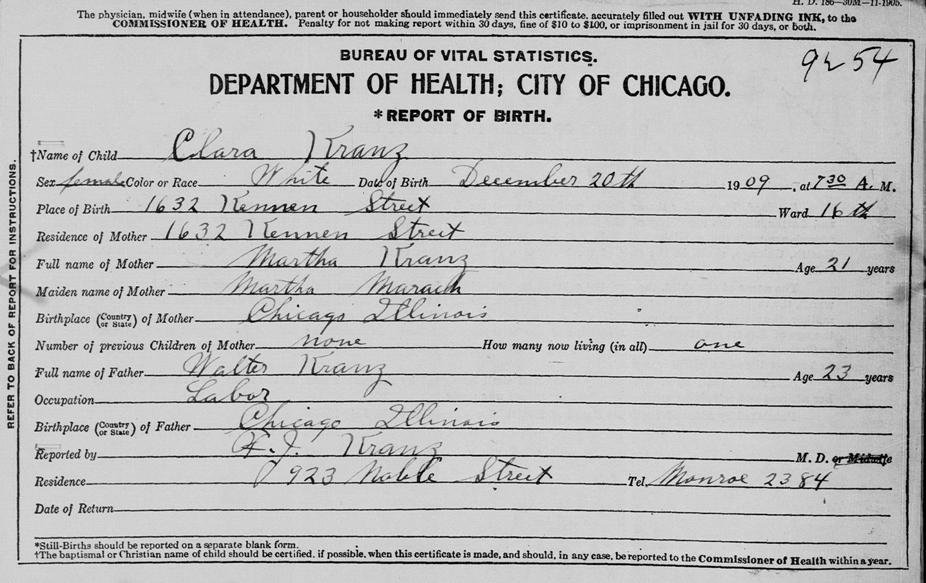 H. D. 186—30M—11-1905.
The physician, midwife (when in attendance), parent or householder should immediately send this certificate, accurately filled out WITH UNFADING INK, to the
COMMISSIONER OF HEALTH. Penalty for not making report within 30 days, fine of $10 to $100, or imprisonment in jail for 30 days, or both.
BUREAU OF VITAL STATISTICS.
9254
DEPARTMENT OF HEALTH; CITY OF CHICAGO.
*REPORT OF BIRTH.
REFER TO BACK OF REPORT FOR INSTRUCTIONS.
†Name of Child Clara Kranz
Sex female Color or Race White Date of Birth December 20th 1909, at 7 30 A. M.
Place of Birth 1632 Kennen Street Ward 16th
Residence of Mother 1632 Kennen Street
Full name of Mother Martha Kranz Age 21 years
Maiden name of Mother Martha
Birthplace (Country or State) of Mother Chicago Illinois
Number of previous Children of Mother none How many now living (in all) one
Full name of Father Walter Kranz Age 23 years
Occupation Labor
Birthplace (Country or State) of Father Chicago Illinois
Reported by J. Kranz M. D. or Midwife
Residence 923 Noble Street Tel. Monroe 2384
Date of Return
*Still-Births should be reported on a separate blank form.
†The baptismal or Christian name of child should be certified, if possible, when this certificate is made, and should, in any case, be reported to the Commissioner of Health within a year.